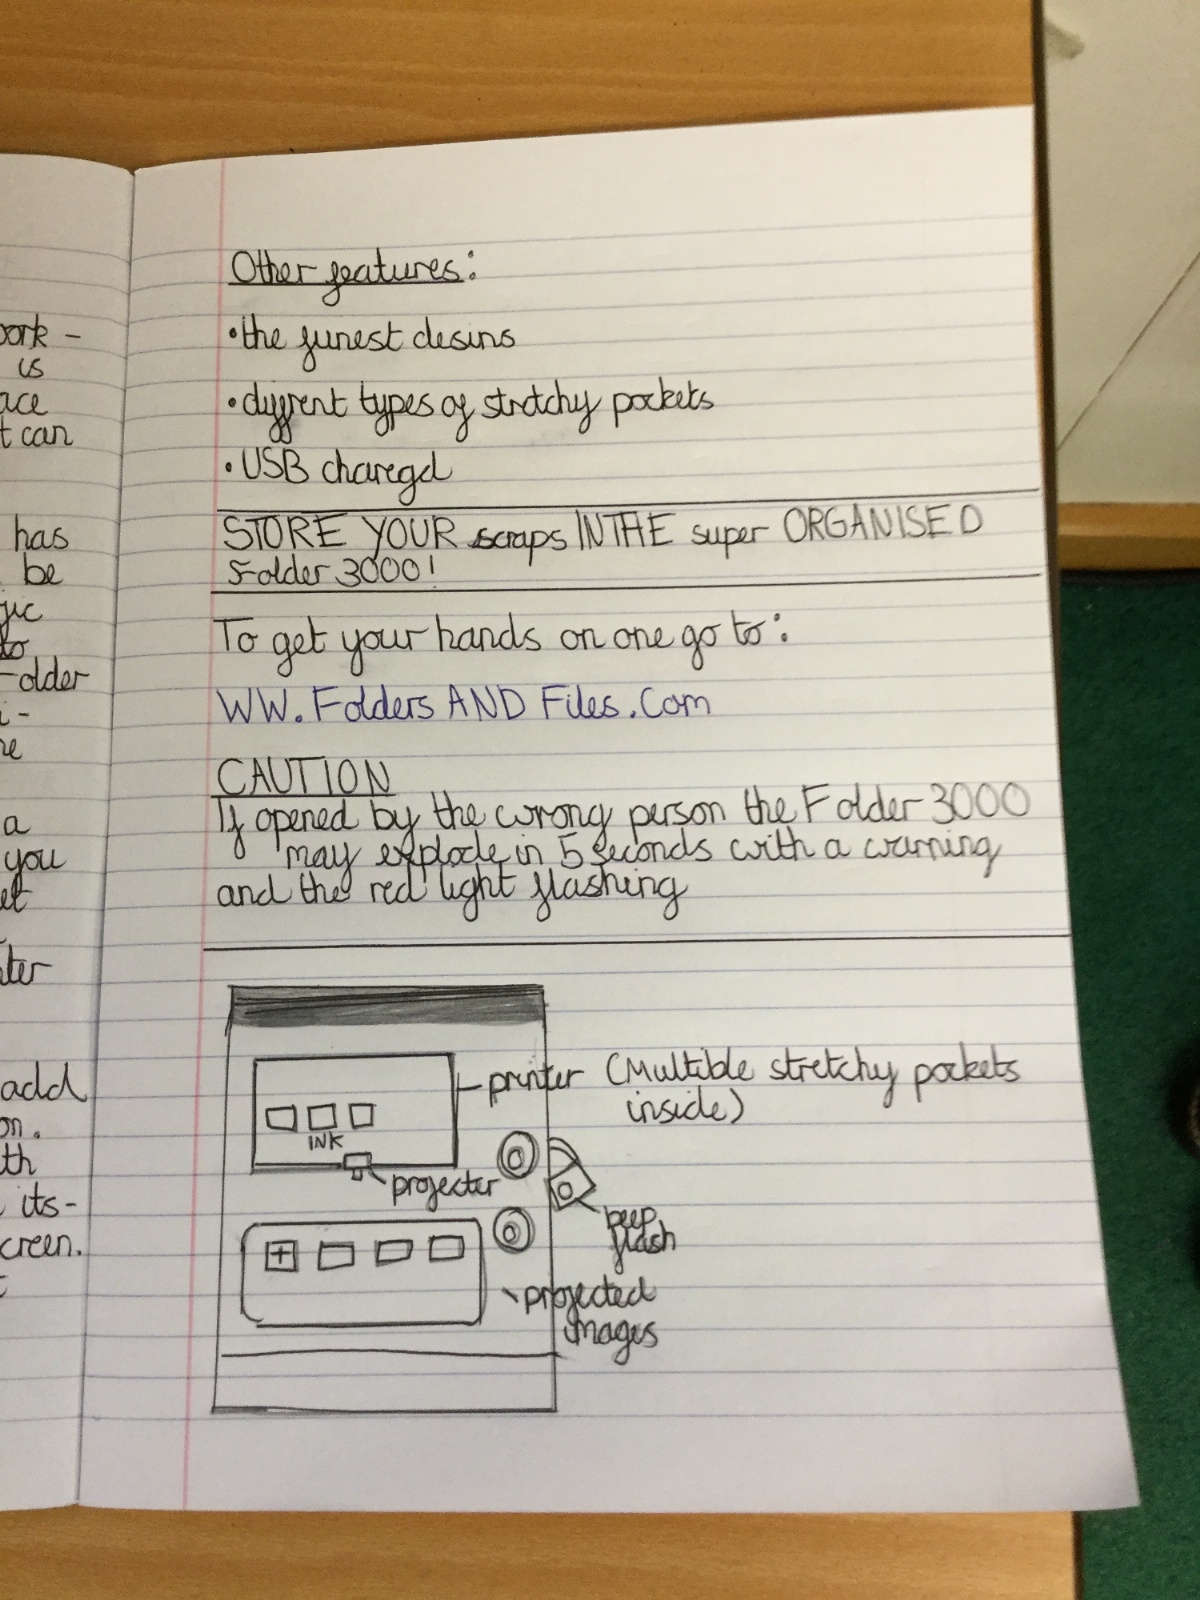 ork -
is
ace
t can
has
be
gic
to
Folder
i-
re
a
you
et
ter
add
on.
th
its-
creen.
t
Other features:
•the funest desins
•diffrent types of stretchy pockets
•USB charegd
STORE YOUR scraps IN THE super ORGANISED
Folder 3000!
To get your hands on one go to:
WW.Folders AND Files.Com
CAUTION
If opened by the wrong person the Folder 3000
may explode in 5 seconds with a warning
and the red light flashing
printer (Multible stretchy pockets
inside)
INK
projecter
beep
flash
projected
images